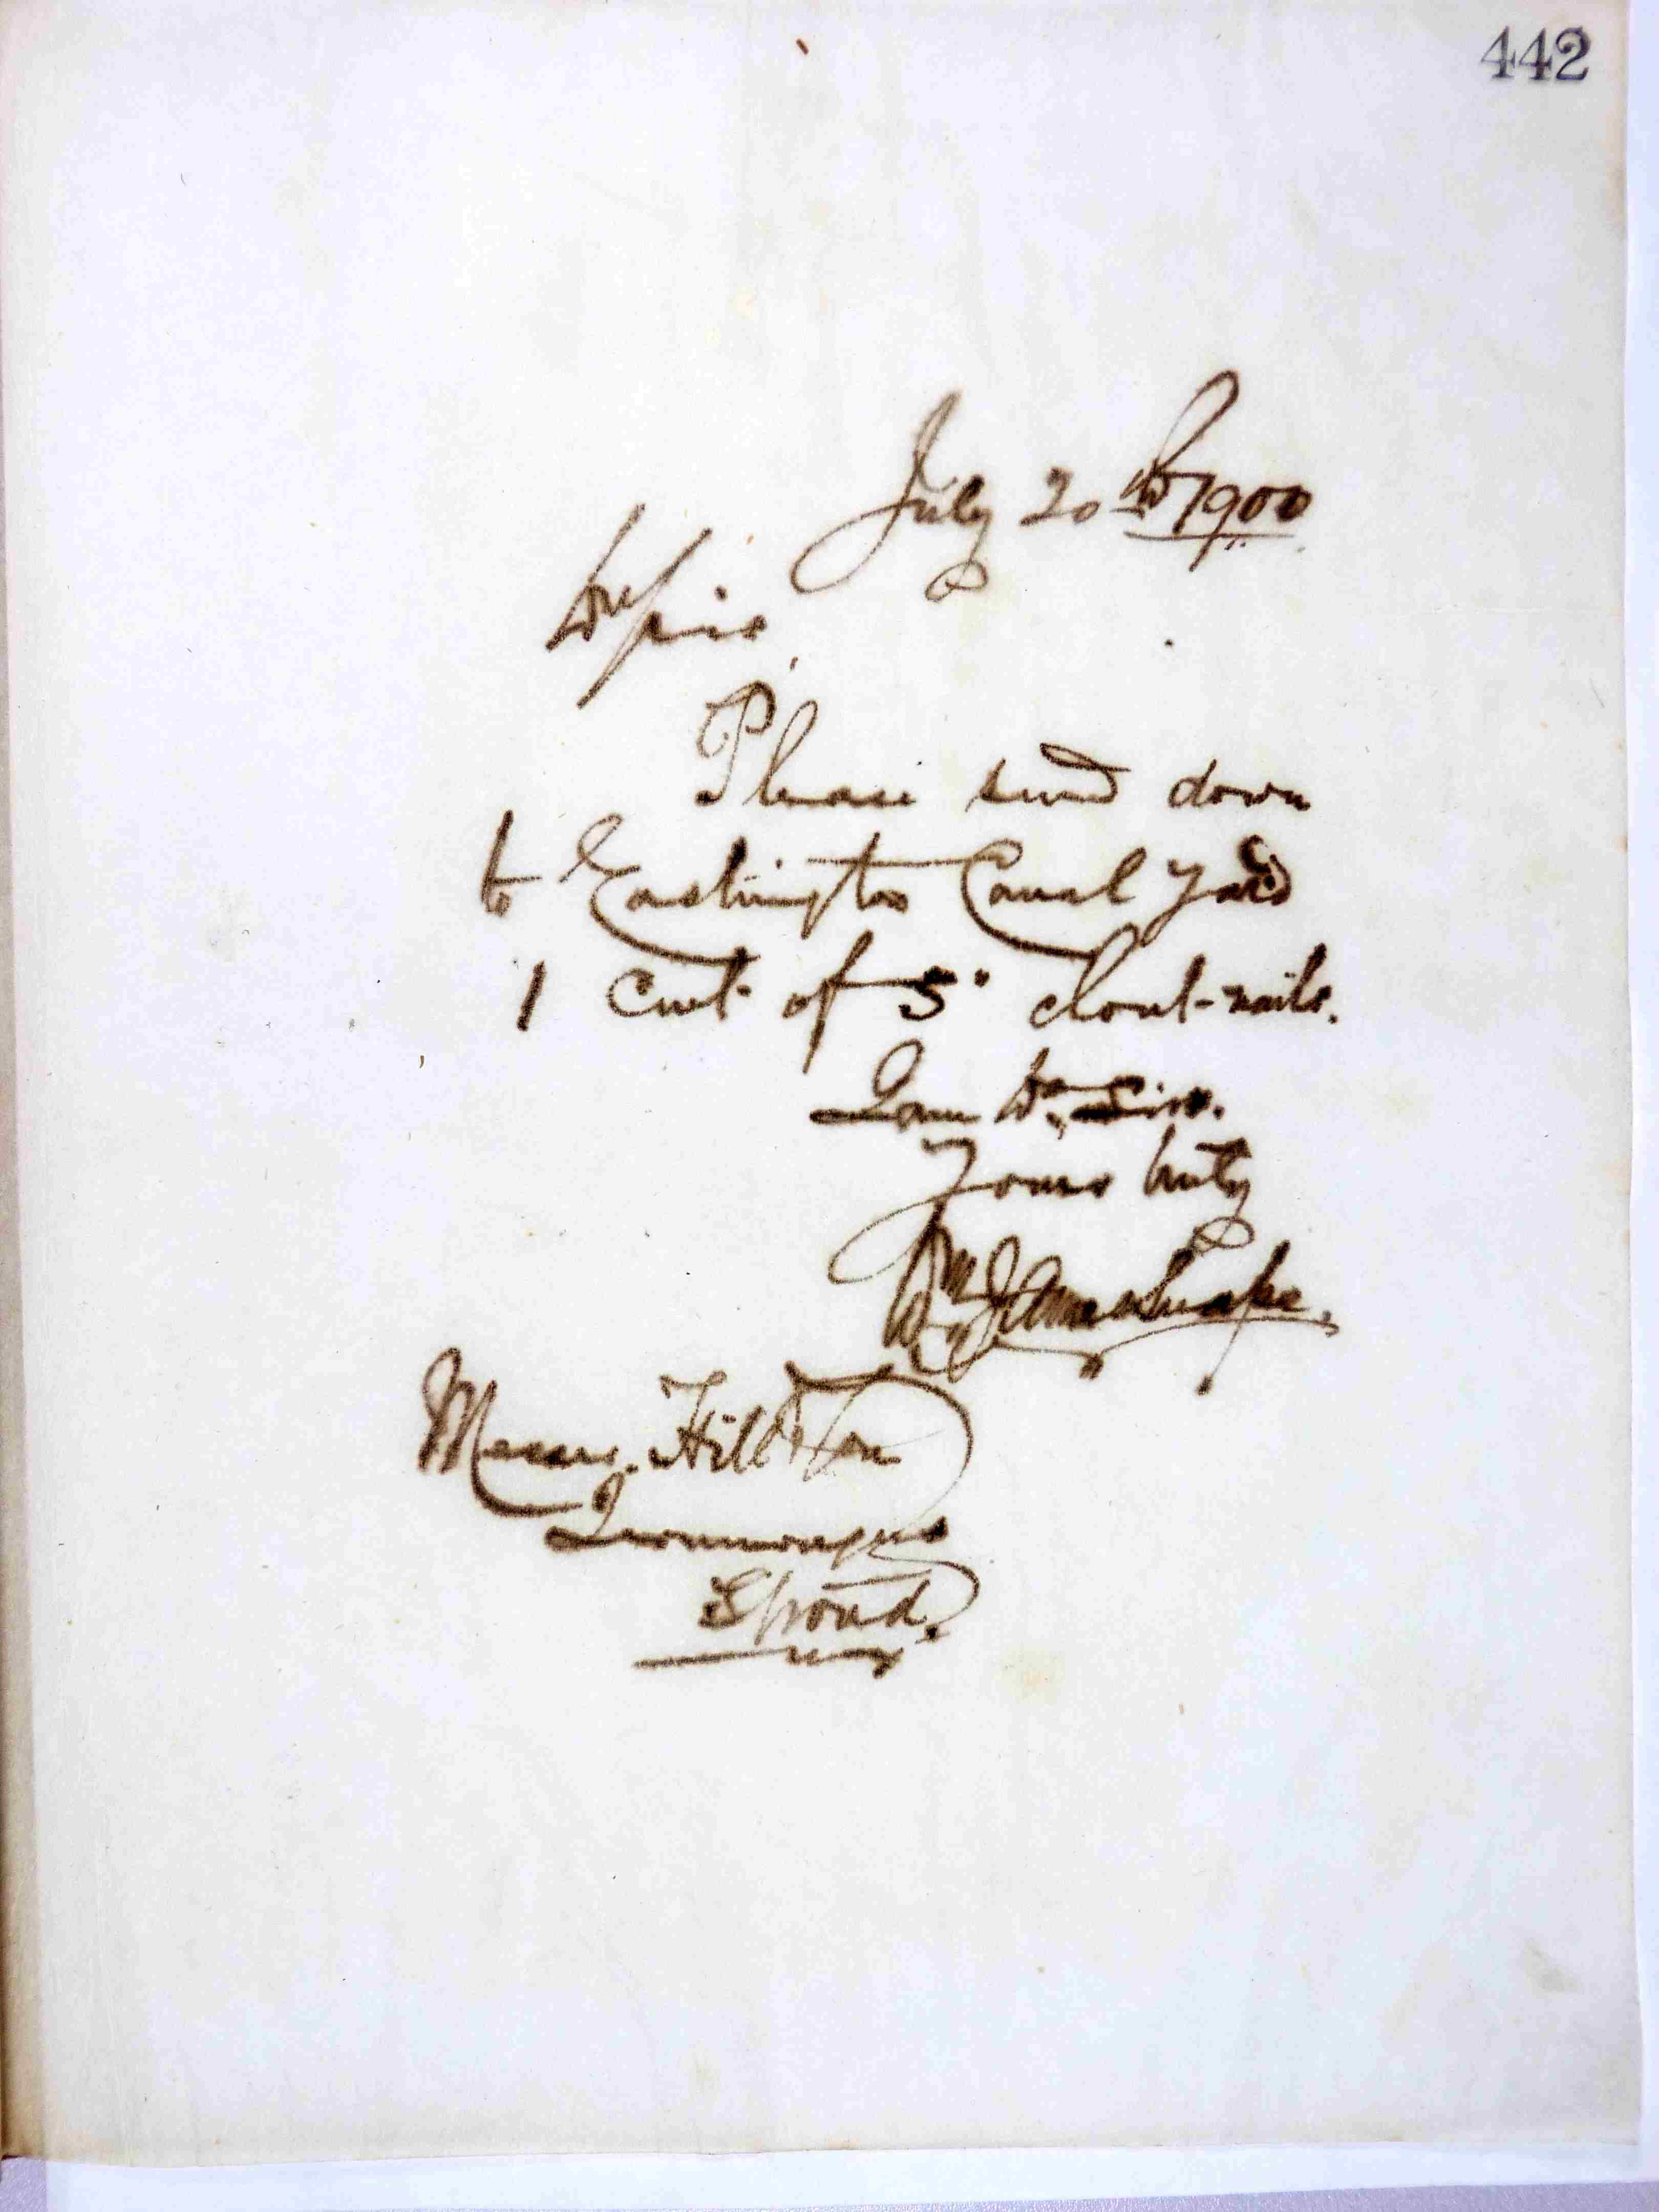 442
July 20th 1900
Dr Sirs
Please send down
to Eastington Canal Yard
1 Cwt. of 5" clout-nails.
I am Dr Sirs.
Yours truly
Wm James Snape.
Messrs. Hill & Son
Ironmongers
Stroud.